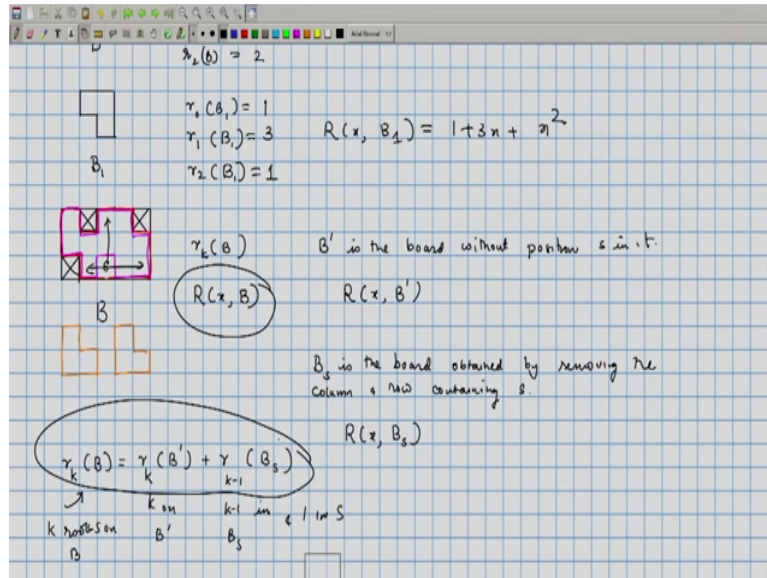 r₂(B) = 2
r₀(B₁) = 1
r₁(B₁) = 3
R(x, B₁) = 1+3x + x²
r₂(B₁) = 1
B₁
r_k(B)
B' is the board without position s in it.
R(x, B)
R(x, B')
s
B
B_s is the board obtained by removing the
column & row containing s.
R(x, B_s)
r_k(B) = r_k(B') + r_{k-1}(B_s)
k rooks on
B
k on
B'
k-1 in
B_s
& 1 in S